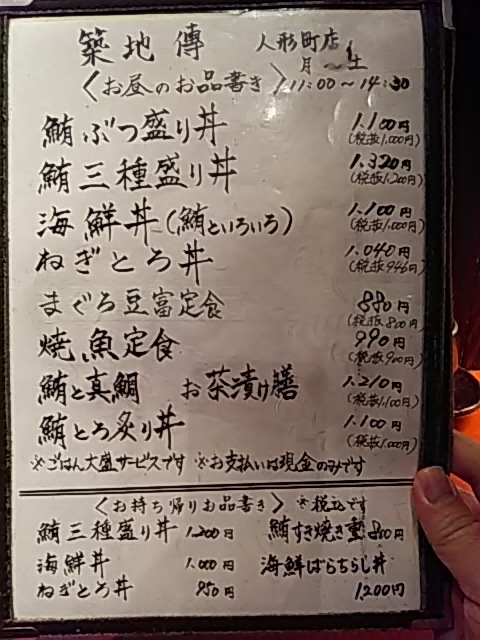 築地傳 人形町店
月〜土
〈お昼のお品書き〉11:00〜14:30
鮪ぶつ盛り丼 1,100円
(税抜1,000円)
鮪三種盛り丼 1,320円
(税抜1,200円)
海鮮丼(鮪といろいろ) 1,100円
(税抜1,000円)
ねぎとろ丼 1,040円
(税抜946円)
まぐろ豆富定食 880円
(税抜800円)
焼魚定食 990円
(税抜900円)
鮪と真鯛 お茶漬け膳 1,210円
(税抜1,100円)
鮪とろ炙り丼 1,100円
(税抜1,000円)
※ごはん大盛サービスです ※お支払いは現金のみです
〈お持ち帰りお品書き〉 ※税込です
鮪三種盛り丼 1,200円 鮪すき焼き重 850円
海鮮丼 1,000円 海鮮ばらちらし丼
ねぎとろ丼 950円 1,200円